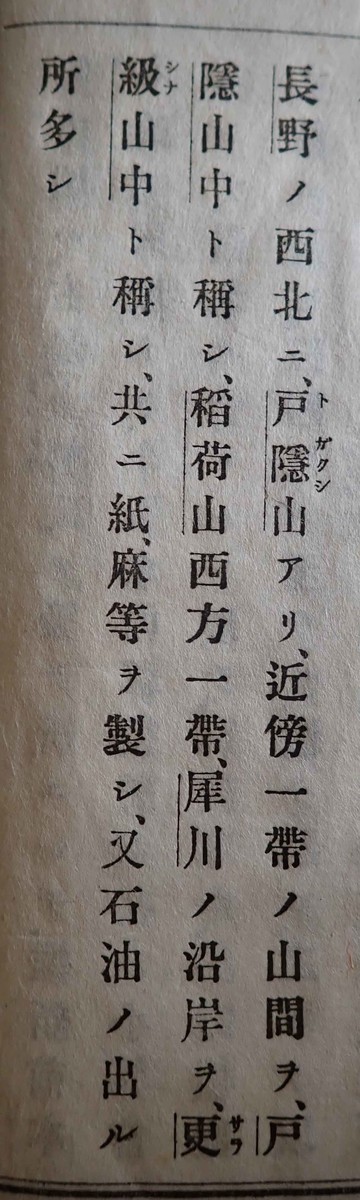 長野ノ西北ニ、戸隱山アリ、近傍一帶ノ山間ヲ、戸
トガクシ
隱山中ト稱シ、稻荷山西方一帶、犀川ノ沿岸ヲ、更
サラ
級山中ト稱シ、共ニ紙、麻等ヲ製シ、又石油ノ出ル
シナ
所多シ